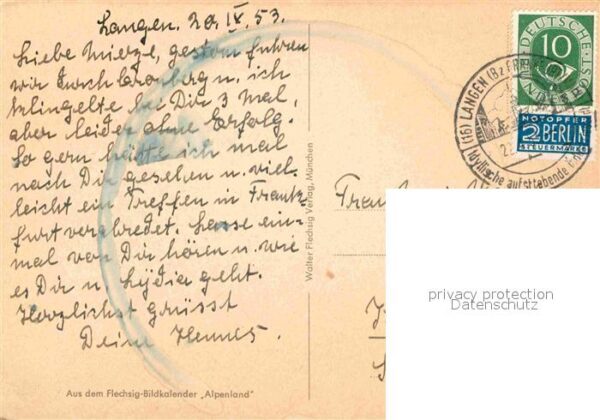 Langen. 29. IX. 53.
Liebe Mierze, gestern fuhren
wir durch Cronberg u. ich
klingelte bei Dir 3 Mal,
aber leider ohne Erfolg.
So gern hätte ich mal
nach Dir gesehen u. viel-
leicht ein Treffen in Frank-
furt verabredet. Lasse ein-
mal von Dir hören u. wie
es Dir u. Lydia geht.
Herzlichst grüsst
Deine Hennes.
Aus dem Flechsig-Bildkalender „Alpenland"
Walter Flechsig Verlag, München
DEUTSCHE
10
BUNDESPOST
NOTOPFER
2 BERLIN
STEUERMARKE
(16) LANGEN (Bz FRANKFURT
Idyllische aufstrebende
Frau
privacy protection
Datenschutz